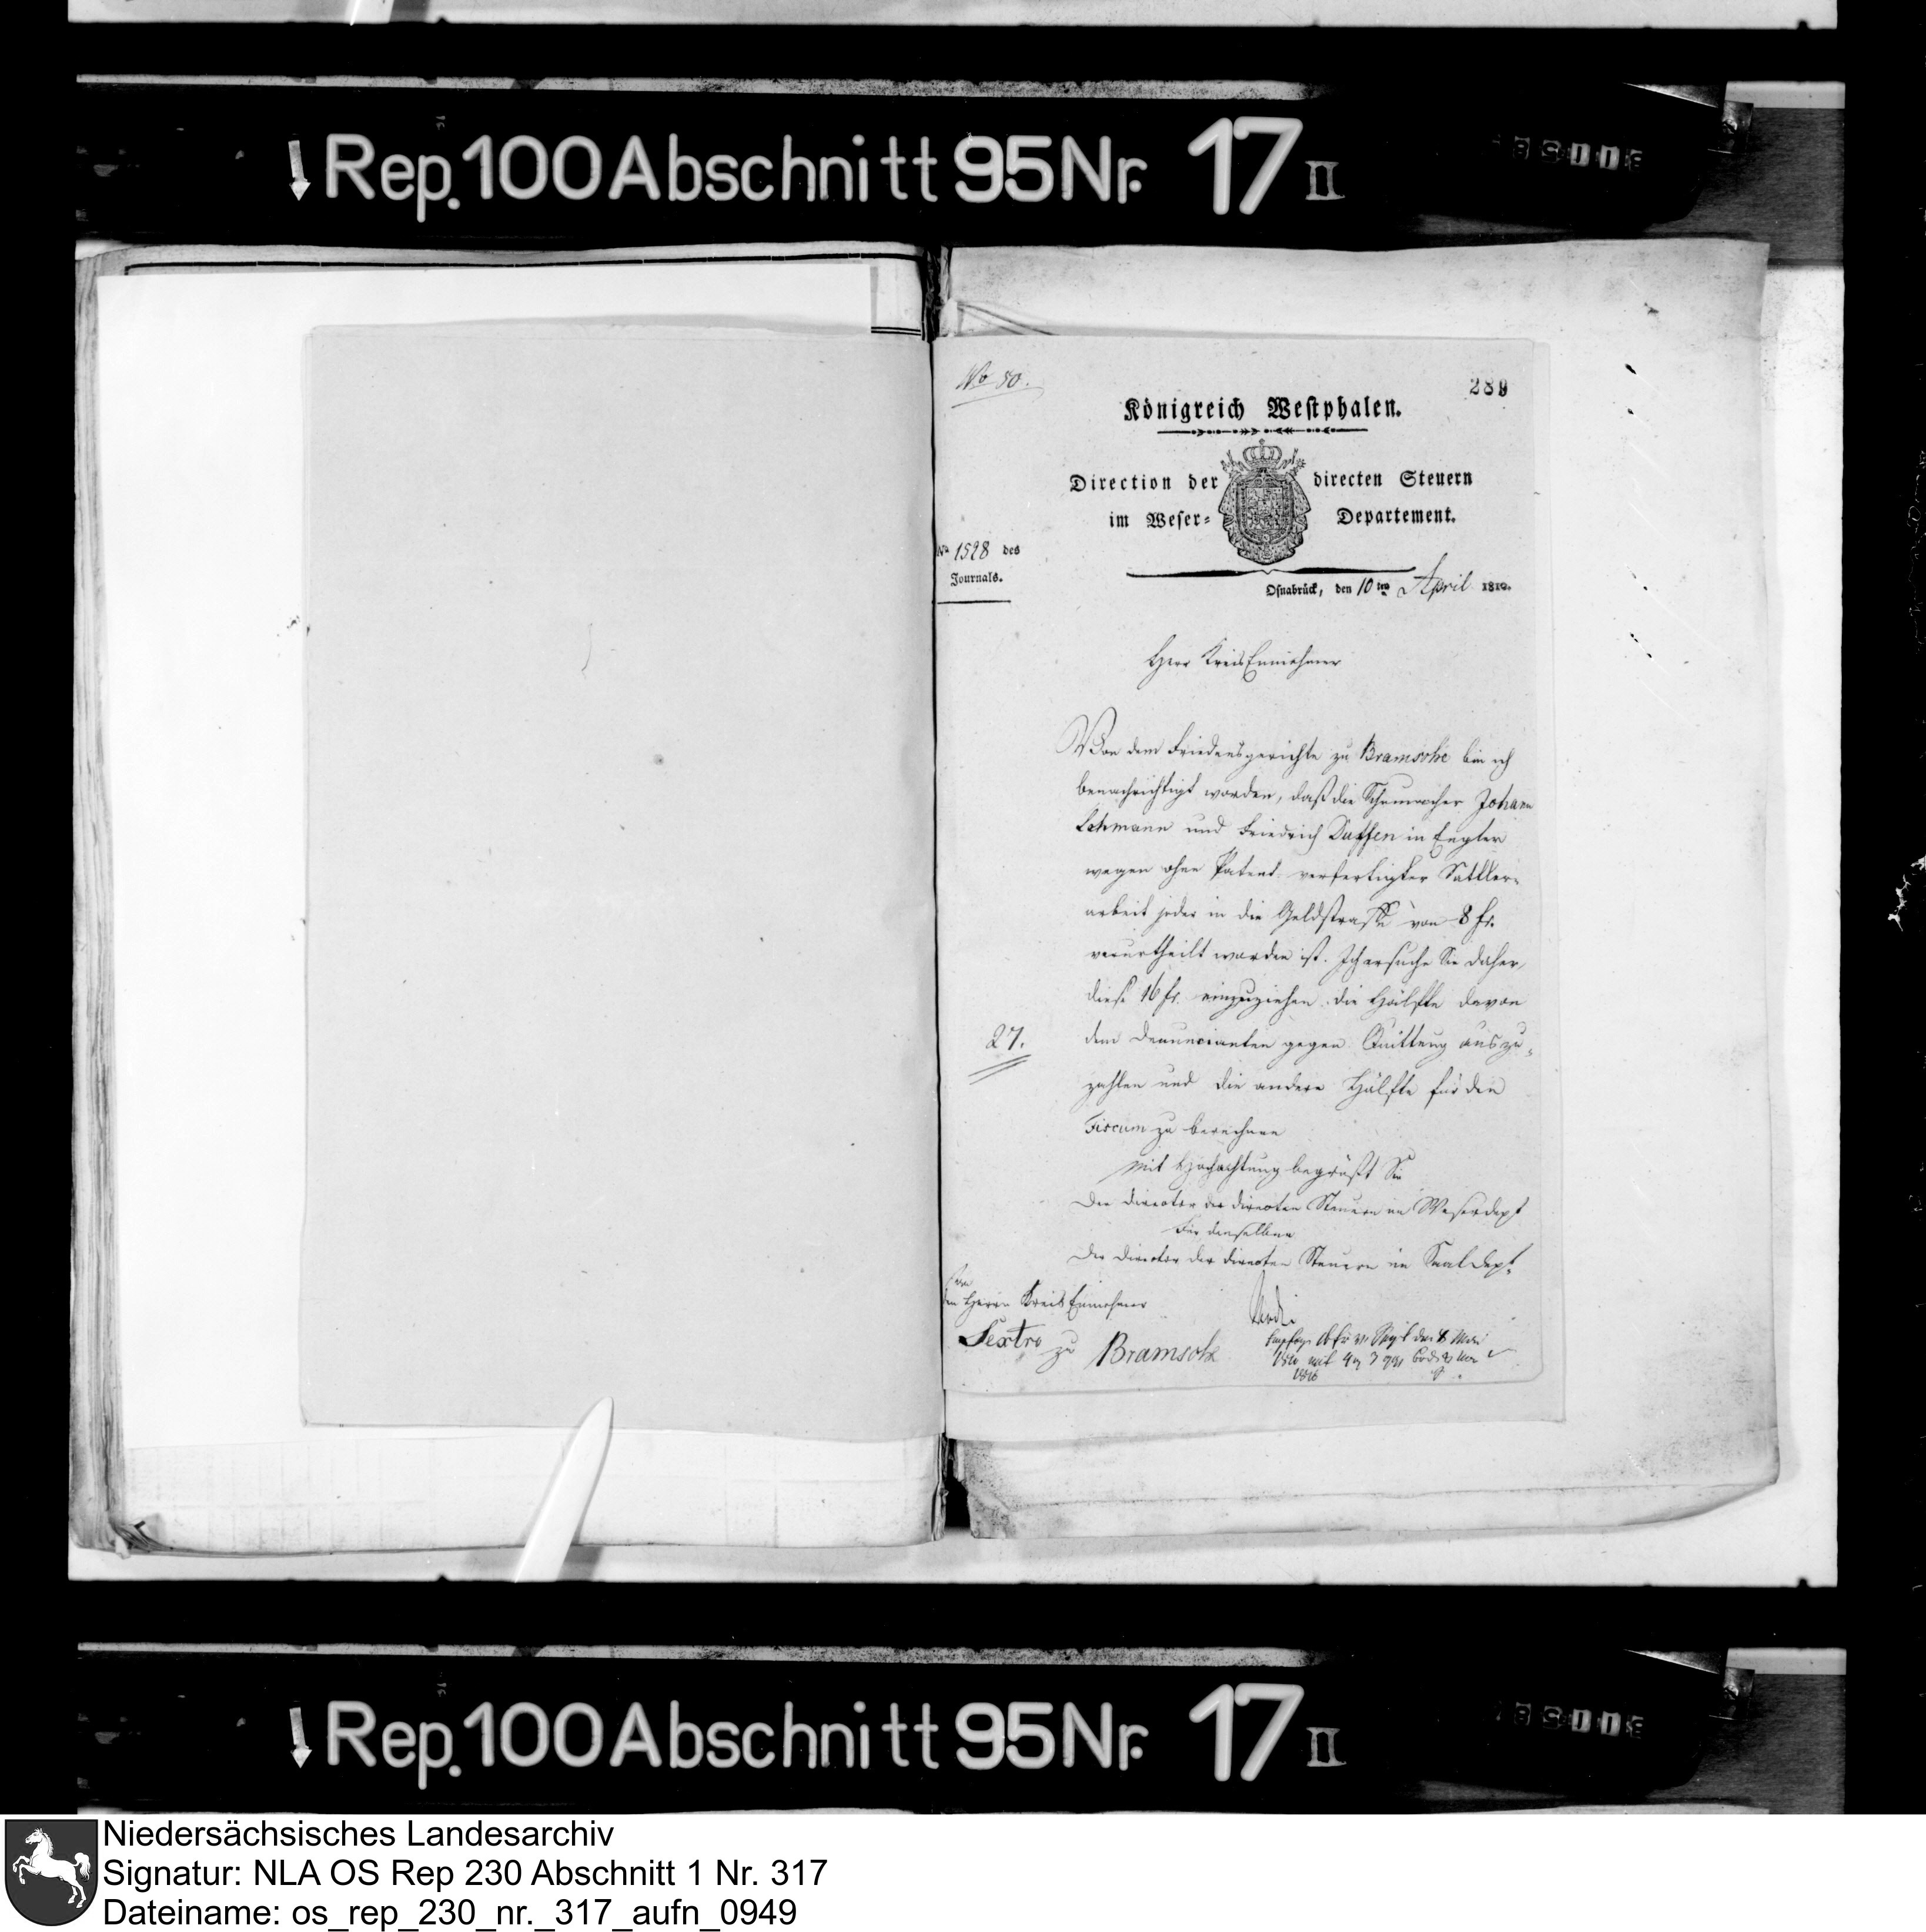 Rep. 100 Abschnitt 95 Nr. 17 II
No 80.
289
Königreich Westphalen.
Direction der directen Steuern
im Weser- Departement.
No 1598 des
Journals.
Osnabrück, den 10 ten April 1810.
Herr KreisEinnehmer
Von dem Friedensgerichte zu Bramsche bin ich
benachrichtigt worden, daß die Schumacher Johann
Lehmann und Friedrich Duffen in Engter
wegen ohne Patent verfertigter Sattler-
arbeit jeder in die Geldstrafe von 8 fr.
verurtheilt worden ist. Ich ersuche Sie daher,
diese 16 fr. einzuziehen die Hälfte davon
27.
dem Denuncianten gegen Quittung auszu-
zahlen und die andere Hälfte für den
Fiscum zu berechnen
Mit Hochachtung begrüßt Sie
Der Director der directen Steuern im Weserdept
Für denselben
Der Director der directen Steuern im Saaldept.
den Herrn Kreis Einnehmer
Sextro zu Bramsche
Rep. 100 Abschnitt 95 Nr. 17 II
Niedersächsisches Landesarchiv
Signatur: NLA OS Rep 230 Abschnitt 1 Nr. 317
Dateiname: os_rep_230_nr._317_aufn_0949